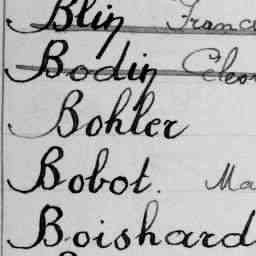 Blin Franc
Bodin Cleo
Bohler
Bobot. Ma
Boishard